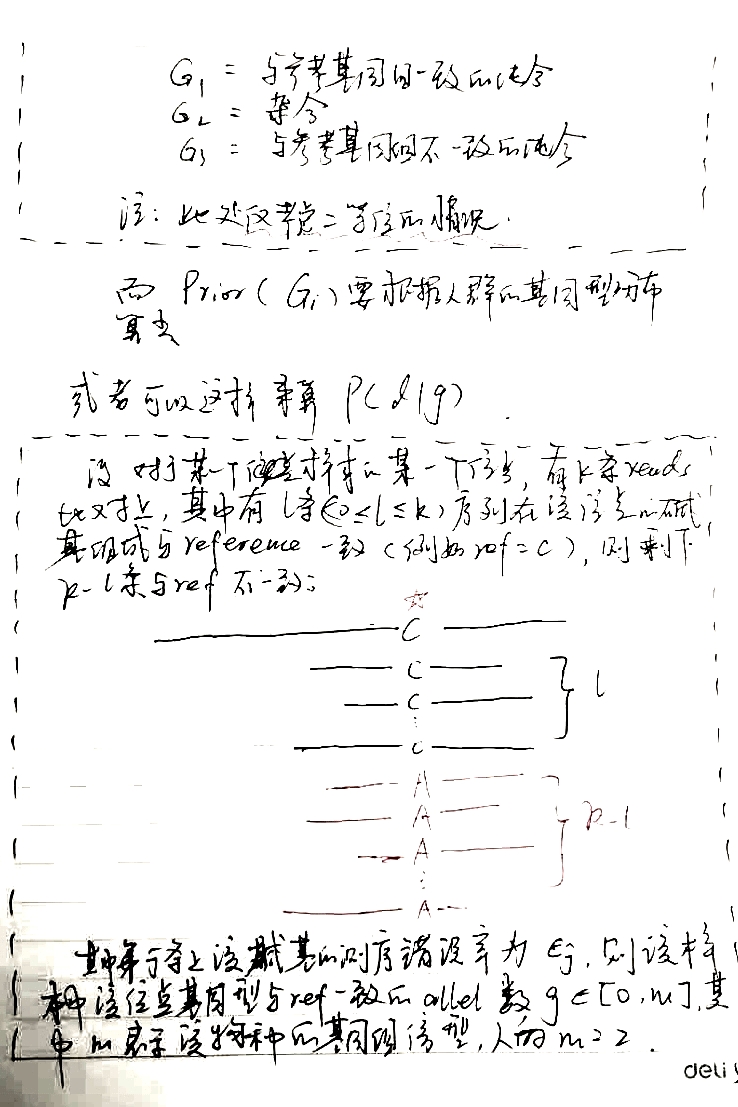 G₁ = 与参考基因组一致的纯合
G₂ = 杂合
G₃ = 与参考基因组不一致的纯合
注：此处仅考虑二等位的情况.
而 Prior(Gᵢ)要根据人群的基因型分布
算出
或者可以这样来算 P(d|g)
设对于某一个样本的某一个位点, 有k条reads
比对上, 其中有l条(0≤l≤k)序列在该位点的碱
基组成与reference一致(例如ref=C), 则剩下
k-l条与ref不一致:
☆
C
C
C l
⋮
C
A
A
A k-l
⋮
A
其中第j条上该碱基的测序错误率为 ϵj, 则该样
本中该位点基因型与ref一致的allel数g∈[0,m], 其
中m表示该物种的基因组倍型, 人的m=2.
deli